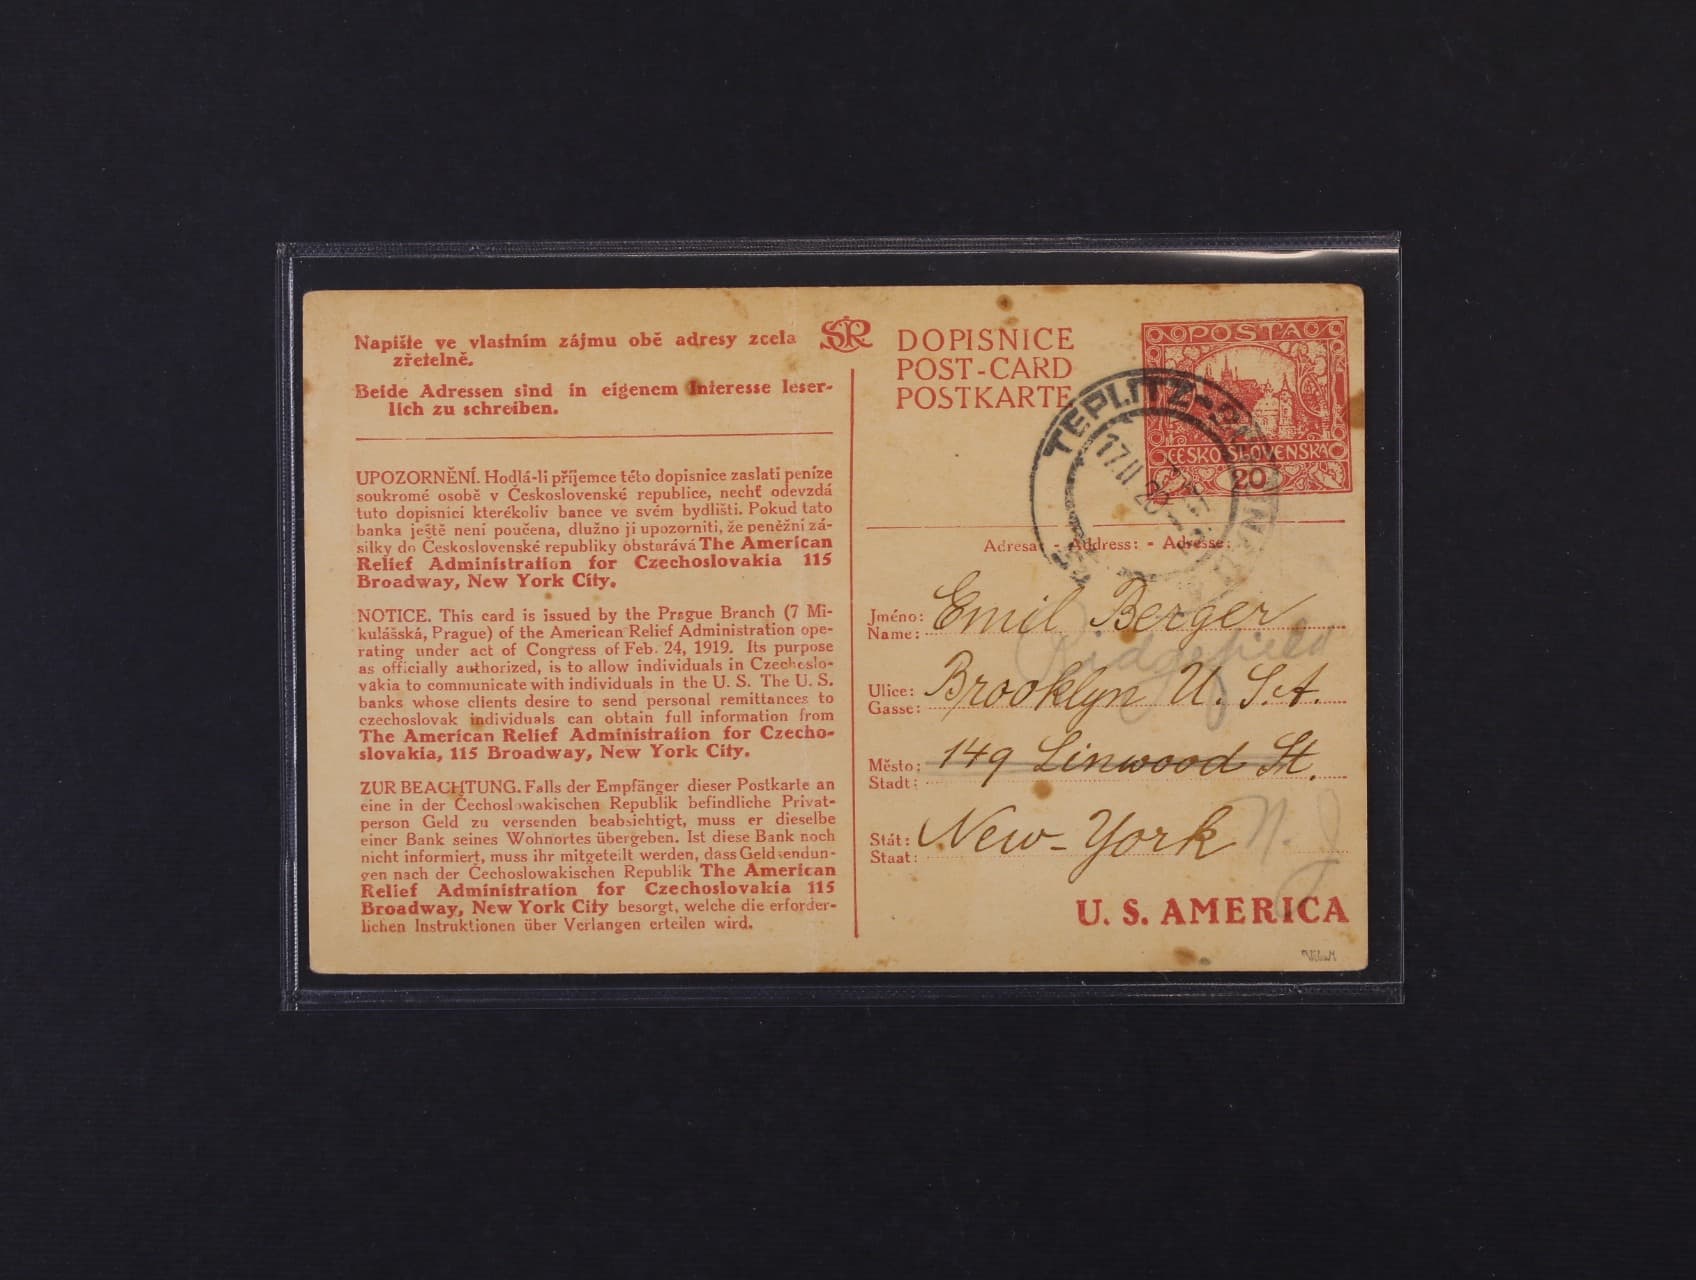 Napište ve vlastním zájmu obě adresy zcela
zřetelně.
Beide Adressen sind in eigenem Interesse leser-
lich zu schreiben.
UPOZORNĚNÍ. Hodlá-li příjemce této dopisnice zaslati peníze
soukromé osobě v Československé republice, nechť odevzdá
tuto dopisnici kterékoliv bance ve svém bydlišti. Pokud tato
banka ještě není poučena, dlužno ji upozorniti, že peněžní zá-
silky do Československé republiky obstarává The American
Relief Administration for Czechoslovakia 115
Broadway, New York City.
NOTICE. This card is issued by the Prague Branch (7 Mi-
kulášská, Prague) of the American Relief Administration ope-
rating under act of Congress of Feb. 24, 1919. Its purpose
as officially authorized, is to allow individuals in Czechoslo-
vakia to communicate with individuals in the U. S. The U. S.
banks whose clients desire to send personal remittances to
czechoslovak individuals can obtain full information from
The American Relief Administration for Czecho-
slovakia, 115 Broadway, New York City.
ZUR BEACHTUNG. Falls der Empfänger dieser Postkarte an
eine in der Čechoslowakischen Republik befindliche Privat-
person Geld zu versenden beabsichtigt, muss er dieselbe
einer Bank seines Wohnortes übergeben. Ist diese Bank noch
nicht informiert, muss ihr mitgeteilt werden, dass Geldsendun-
gen nach der Čechoslowakischen Republik The American
Relief Administration for Czechoslovakia 115
Broadway, New York City besorgt, welche die erforder-
lichen Instruktionen über Verlangen erteilen wird.
DOPISNICE
POST-CARD
POSTKARTE
POŠTA
ČESKO-SLOVENSKÁ
20
TEPLITZ-
17.II 20
Adresa: - Address: - Adresse:
Jméno: Emil Berger
Name:
Ridgefield
Ulice: Brooklyn U. S. A.
Gasse:
Město: 149 Linwood St.
Stadt:
Stát: New-York N. J
Staat:
U. S. AMERICA